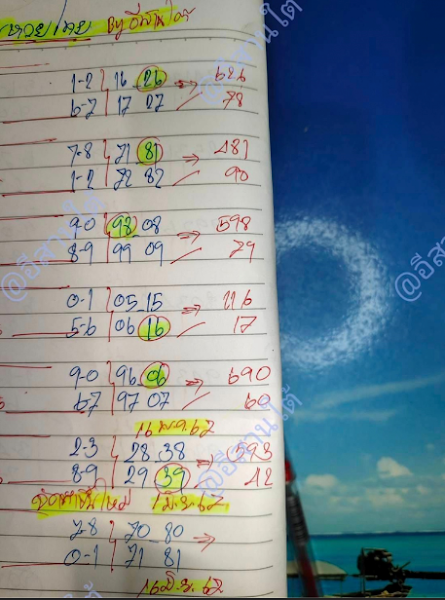 หวยไทย By อีสานใต้
1-2 16 26 ⇒ 626
6-7 17 27 78
7-8 71 81 ⇒ 481
1-2 72 82 90
9-0 98 08 ⇒ 598
8-9 99 09 79
0-1 05 15 ⇒ 116
5-6 06 16 17
9-0 96 06 ⇒ 690
6-7 97 07 60
16 พ.ค. 62
2-3 28 38 ⇒ 593
8-9 29 39 42
1 มิ.ย. 62
7-8 70 80 ⇒
0-1 71 81
16 มิ.ย. 62
@อีสานใต้
@อีสานใต้
@อีสานใต้